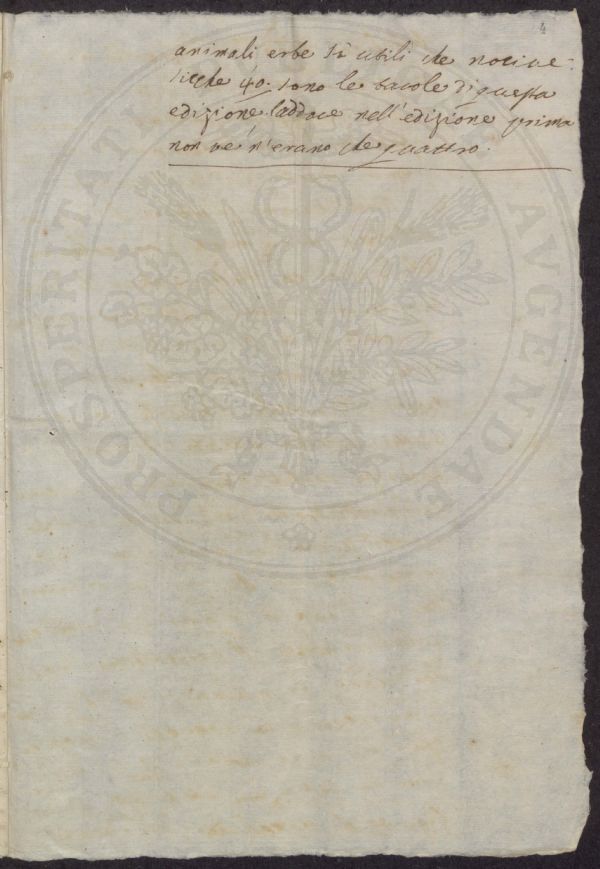 4
animali erbe sì utili che nocive.
sicche 40. sono le tavole di questa
edizione laddove nell'edizione prima
non ve n'erano che quattro.
PROSPERITATI AUGENDAE